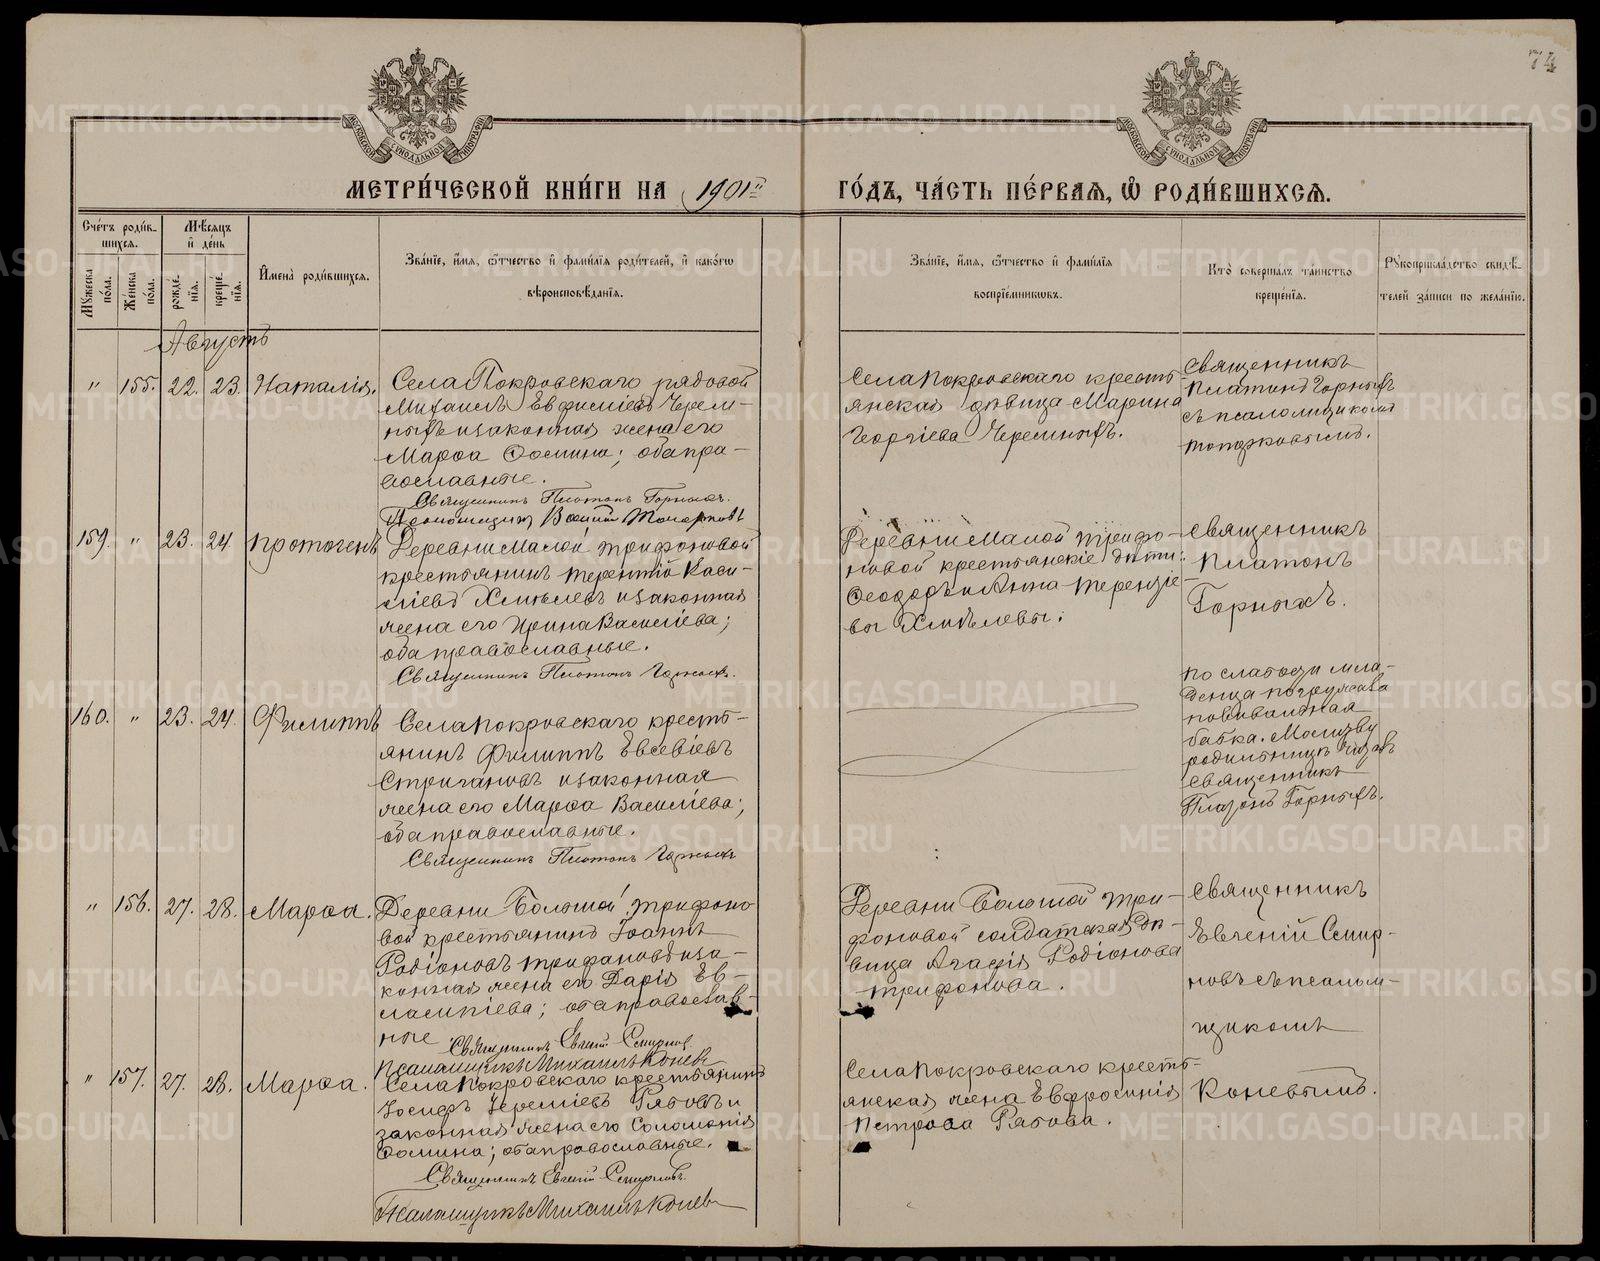 74
МОСКОВСКОЙ СѴНОДАЛЬНОЙ ТИПОГРАФІИ
МОСКОВСКОЙ СѴНОДАЛЬНОЙ ТИПОГРАФІИ
МЕТРИ́ЧЕСКОЙ КНИ́ГИ НА 1901й ГО́ДЪ, ЧА́СТЬ ПЕ́РВАЯ, Ѡ҆ РОДИ́ВШИХСЯ.
Сче́тъ роди́в-
шихся.
Мꙋжеска по́ла.
Же́нска по́ла.
Мѣ́сяцъ и҆ де́нь
рожде́-нія.
креще́-нія.
И҆мена̀ роди́вшихся.
Зва́ніе, и҆́мя, ѻ҆́тчество и҆ фами́лія роди́телей, и҆ како́гѡ
вѣроисповѣ́данія.
Зва́ніе, и҆́мя, ѻ҆́тчество и҆ фами́лія
воспріе́мникѡвъ.
Кто̀ соверша́лъ та́инство
креще́нія.
Рꙋкоприкла́дство свидѣ́-
телей за́писи по жела́нію.
Августъ
" 155. 22. 23. Наталія.
Села Покровскаго рядовой
Михаилъ Евфиміевъ Черем-
ныхъ и законная жена его
Марѳа Ѳомина; оба пра-
вославные.
Священникъ Платонъ Горныхъ.
Псаломщикъ
Села Покровскаго кресть-
янская дѣвица Марина
Георгіева Черемныхъ.
Священникъ
Платонъ Горныхъ
съ псаломщикомъ
159. " 23. 24. Протогенъ
Деревни Малой Трифоновой
крестьянинъ Терентій Васи-
ліевъ Хмѣлевъ и законная
жена его Ирина Василіева;
оба православные.
Священникъ Платонъ Горныхъ.
Деревни Малой Трифо-
новой крестьянскіе дѣти:
Ѳеодоръ и Анна Терентіе-
вы Хмѣлевы.
Священникъ
Платонъ
Горныхъ.
160. " 23. 24. Филиппъ
Села Покровскаго кресть-
янинъ Филиппъ Евсевіевъ
Стригановъ и законная
жена его Марѳа Василіева;
оба православные.
Священникъ Платонъ Горныхъ
По слабости мла-
денца погружала
повивальная
бабка. Молитву
родильницѣ читалъ
священникъ
Платонъ Горныхъ.
" 156. 27. 28. Марѳа.
Деревни Большой Трифоно-
вой крестьянинъ Іоаннъ
Родіоновъ Трифановъ и за-
конная жена его Дарія Ев-
лампіева; оба православ-
ные.
Священникъ Евгеній Смирновъ
Псаломщикъ Михаилъ Коневъ
Деревни Большой Три-
фоновой солдатская дѣ-
вица Агафія Родіонова
Трифонова.
Священникъ
Евгеній Смир-
новъ съ псалом-
щикомъ
Коневымъ.
" 157. 27. 28. Марѳа.
Села Покровскаго крестьянинъ
Іосифъ Іереміевъ Рябовъ и
законная жена его Соломонія
Ѳомина; оба православные.
Священникъ Евгеній Смирновъ.
Псаломщикъ Михаилъ Коневъ
Села Покровскаго кресть-
янская жена Евфросинія
Петрова Рябова.
METRIKI.GASO-URAL.RU